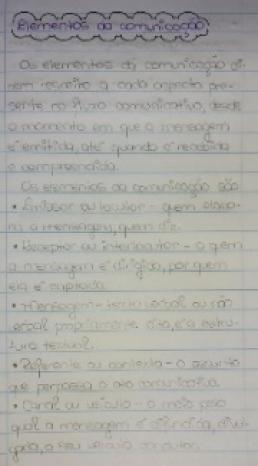 Elementos da comunicação
Os elementos da comunicação di-
zem respeito a cada aspecto pre-
sente no fluxo comunicativo, desde
o momento em que a mensagem
é emitida, até quando é recebida
e compreendida.
Os elementos da comunicação são
• Emissor ou locutor - quem
a mensagem, quem diz.
• Receptor ou interlocutor - a quem
a mensagem é dirigida, por quem
ela é captada
• Mensagem - texto verbal ou não
verbal propriamente dito, é a estru-
tura textual.
• Referente ou contexto - o assunto
que perpassa o ato comunicativo
• Canal ou veículo - o meio pelo
qual a mensagem é
o seu veículo condutor.